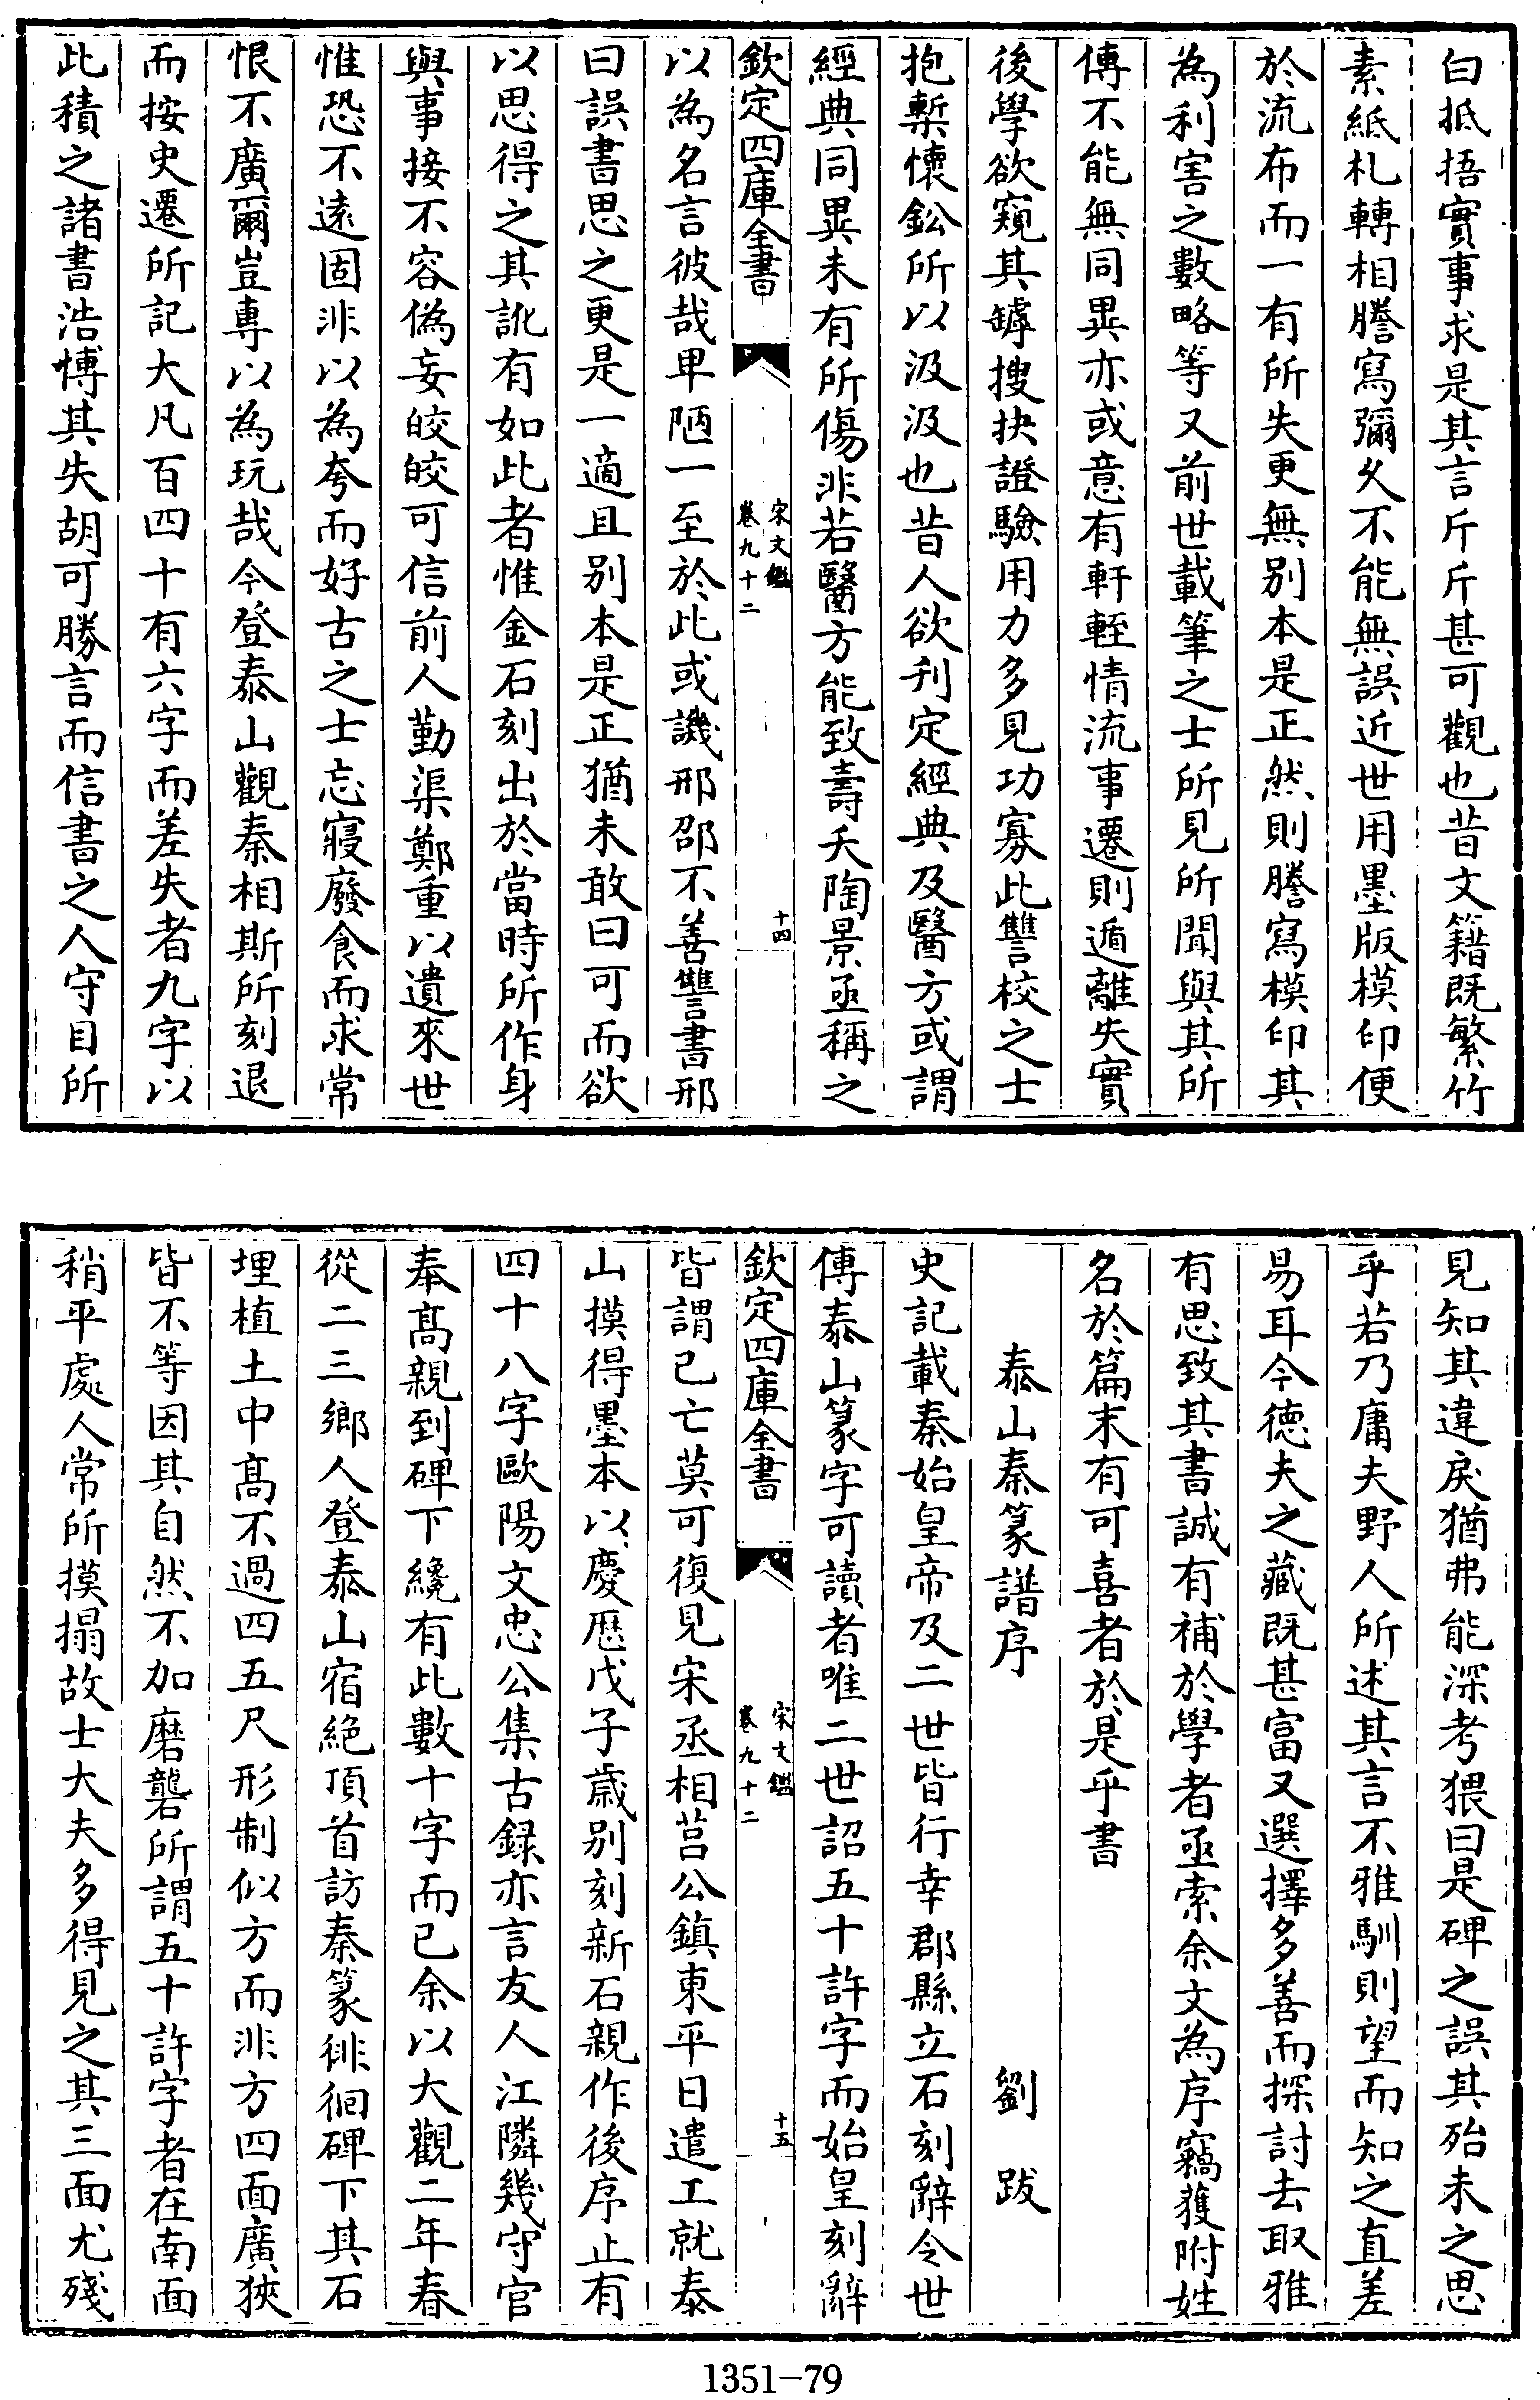 白抵捂實事求是其言斤斤甚可觀也昔文籍既繁竹
素紙札轉相謄寫彌久不能無誤近世用墨版模印便
於流布而一有所失更無別本是正然則謄寫模印其
為利害之數略等又前世載筆之士所見所聞與其所
傳不能無同異亦或意有軒輊情流事遷則遁離失實
後學欲窺其罅搜抉證驗用力多見功寡此讐校之士
抱槧懷鈆所以汲汲也昔人欲刋定經典及醫方或謂
經典同異未有所傷非若醫方能致壽夭陶景亟稱之
欽定四庫全書
宋文鑑
卷九十二
十四
以為名言彼哉卑陋一至於此或譏邢邵不善讐書邢
曰誤書思之更是一適且別本是正猶未敢曰可而欲
以思得之其訛有如此者惟金石刻出於當時所作身
與事接不容偽妄皎皎可信前人勤渠鄭重以遺來世
惟恐不遠固非以為夸而好古之士忘寢廢食而求常
恨不廣爾豈專以為玩哉今登泰山觀秦相斯所刻退
而按史遷所記大凡百四十有六字而差失者九字以
此積之諸書浩博其失胡可勝言而信書之人守目所
見知其違戾猶弗能深考猥曰是碑之誤其殆未之思
乎若乃庸夫野人所述其言不雅馴則望而知之直差
易耳今徳夫之藏既甚富又選擇多善而探討去取雅
有思致其書誠有補於學者亟索余文為序竊獲附姓
名於篇末有可喜者於是乎書
泰山秦篆譜序 劉跂
史記載秦始皇帝及二世皆行幸郡縣立石刻辭今世
傳泰山篆字可讀者唯二世詔五十許字而始皇刻辭
欽定四庫全書
宋文鑑
卷九十二
十五
皆謂已亡莫可復見宋丞相莒公鎮東平日遣工就泰
山摸得墨本以慶厯戊子歳別刻新石親作後序止有
四十八字歐陽文忠公集古録亦言友人江隣幾守官
奉髙親到碑下纔有此數十字而已余以大觀二年春
從二三鄉人登泰山宿絶頂首訪秦篆徘徊碑下其石
埋植土中髙不過四五尺形制似方而非方四面廣狹
皆不等因其自然不加磨礱所謂五十許字者在南面
稍平處人常所摸搨故士大夫多得見之其三面尤殘
1351-79